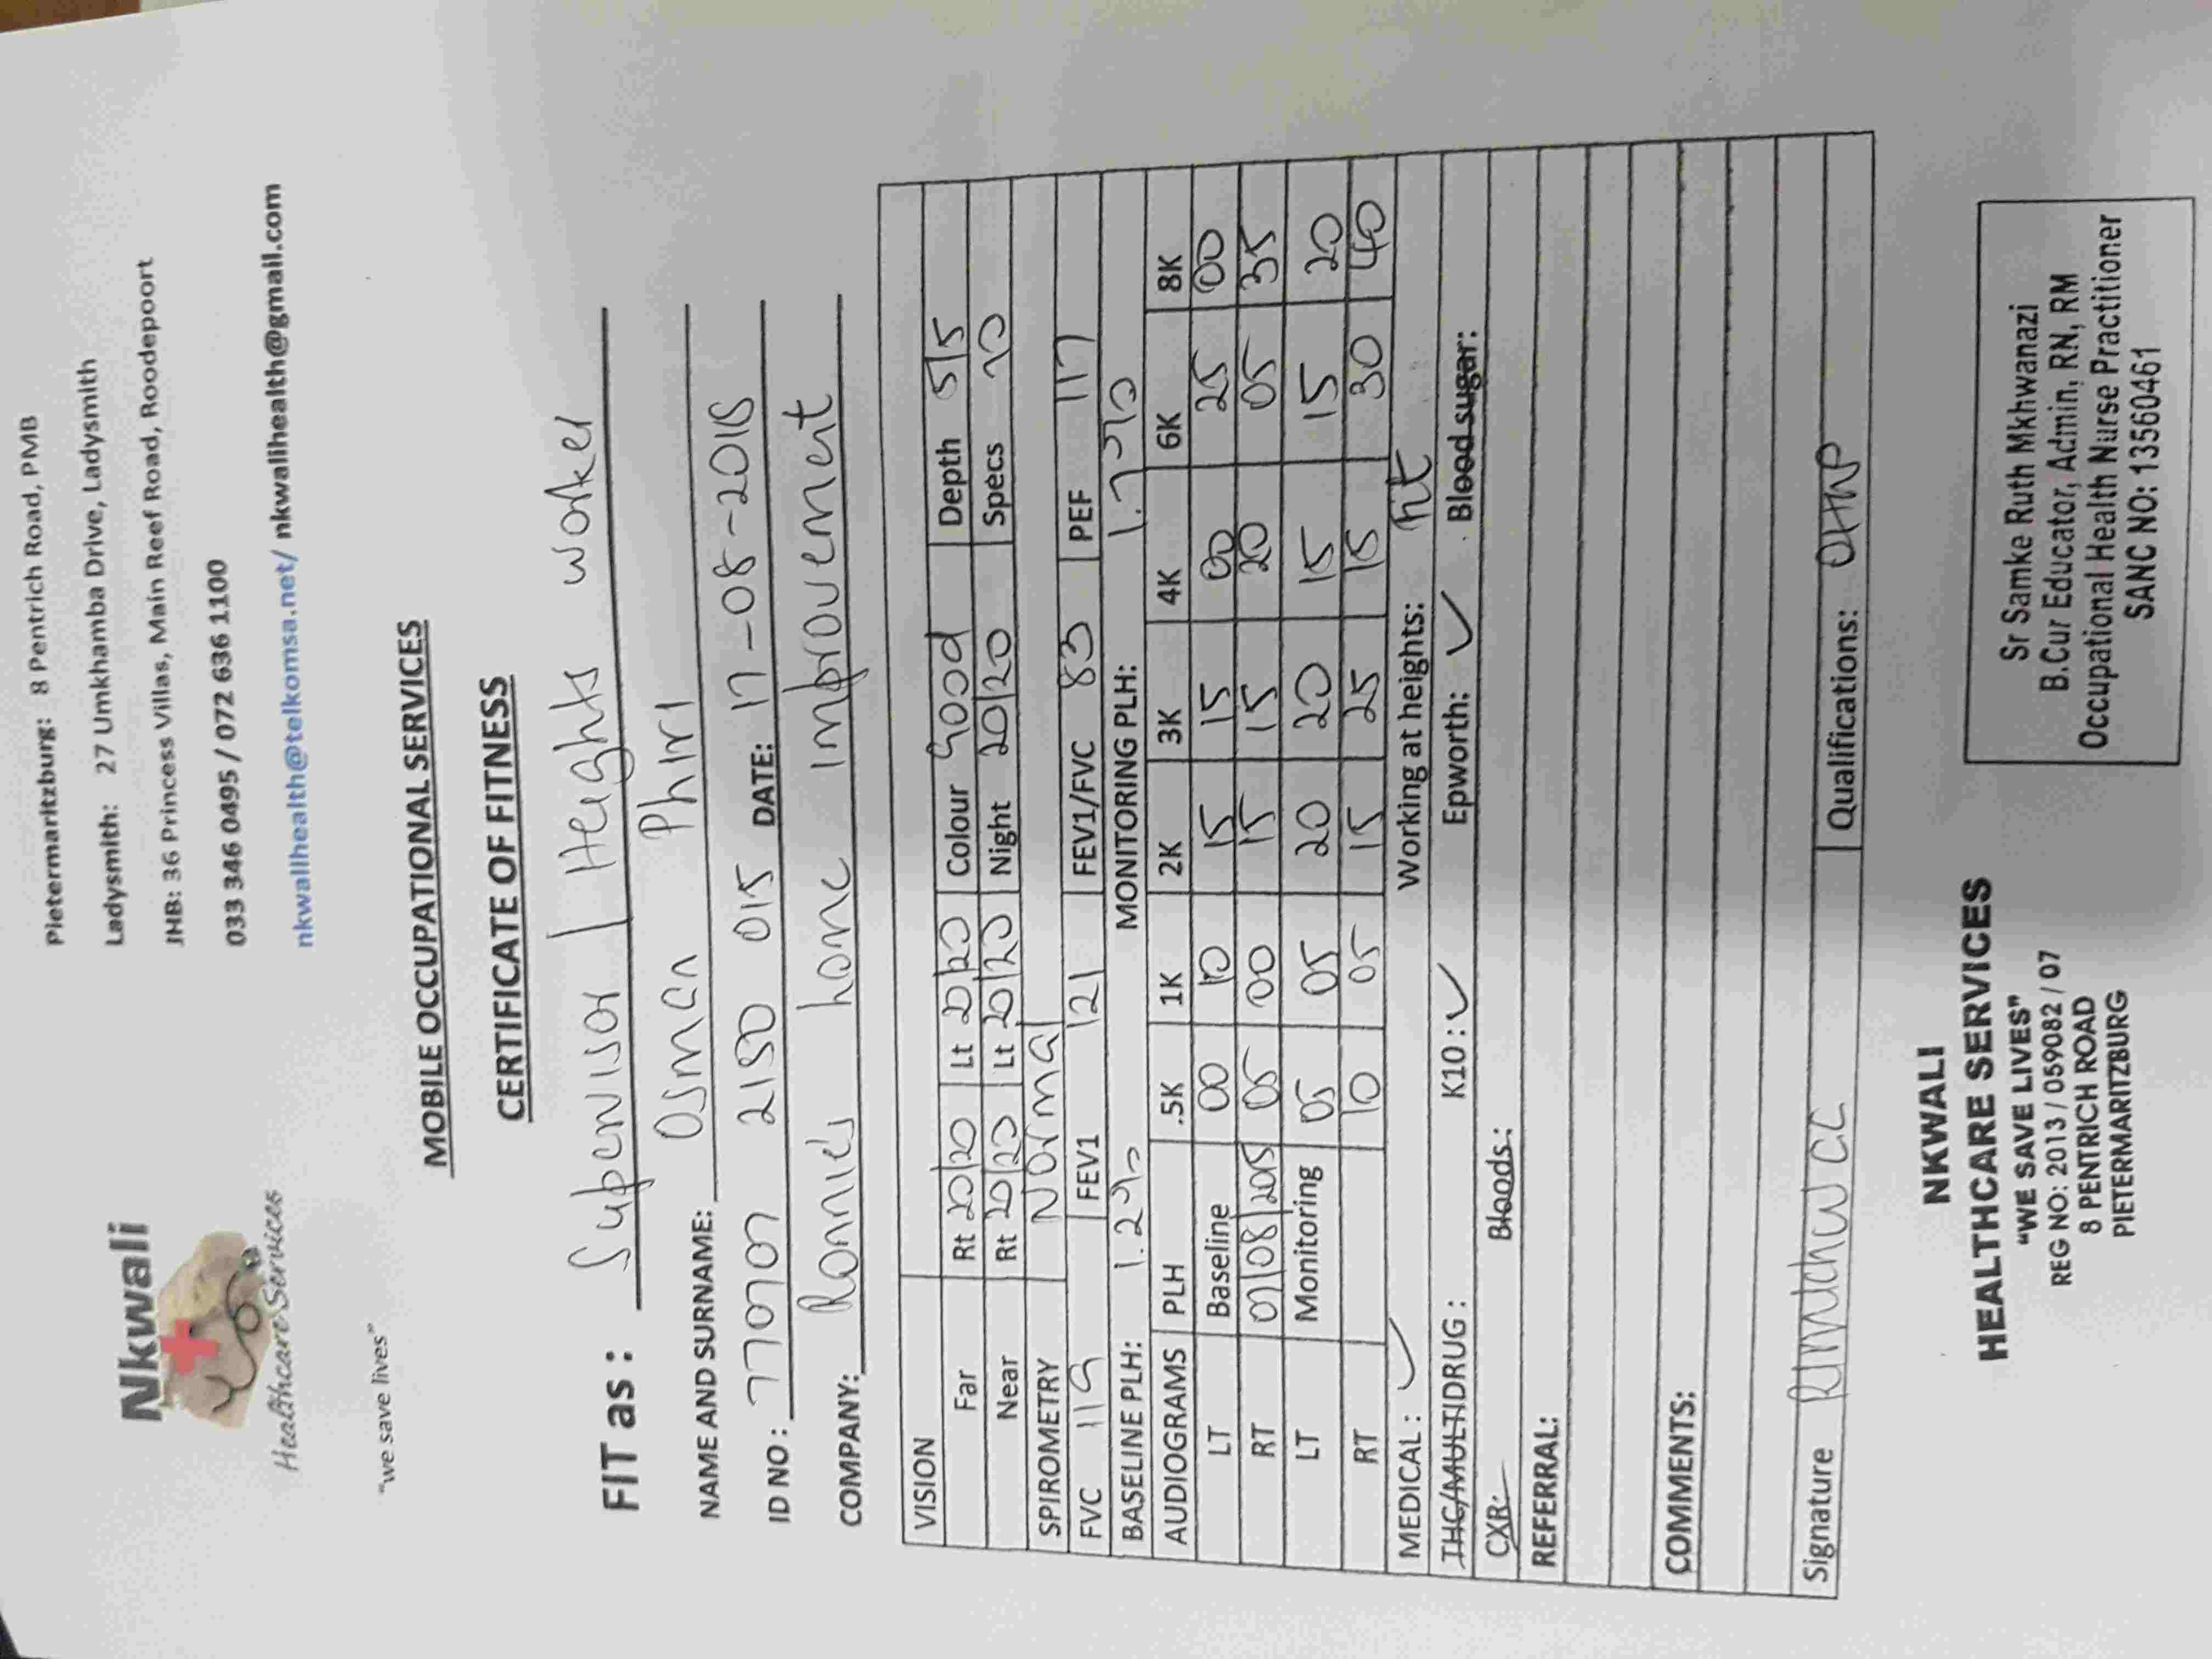 Nkwali
Healthcare Services
"we save lives"
Pietermaritzburg: 8 Pentrich Road, PMB
Ladysmith: 27 Umkhamba Drive, Ladysmith
JHB: 36 Princess Villas, Main Reef Road, Roodepoort
033 346 0495 / 072 636 1100
nkwalihealth@telkomsa.net/ nkwalihealth@gmail.com
MOBILE OCCUPATIONAL SERVICES
CERTIFICATE OF FITNESS
FIT as : Supervisor / Heights worker
NAME AND SURNAME: Osman Phiri
ID NO : 770707 2150 015 DATE: 17-08-2018
COMPANY: Ronnie's home improvement
VISION
Far Rt 20/20 Lt 20/20 Colour good Depth 5/5
Near Rt 20/20 Lt 20/20 Night 20/20 Specs no
SPIROMETRY Normal
FVC 119 FEV1 121 FEV1/FVC 83 PEF 117
BASELINE PLH: 1.2% MONITORING PLH: 1.7%
AUDIOGRAMS PLH .5K 1K 2K 3K 4K 6K 8K
LT Baseline 00 10 15 15 00 25 00
RT 07/08/2015 05 00 15 15 20 05 35
LT Monitoring 05 05 20 20 15 15 20
RT 10 05 15 25 15 30 40
MEDICAL : ✓ Working at heights: fit
THC/MULTIDRUG : K10 : ✓ Epworth: ✓ Blood sugar:
CXR: Bloods:
REFERRAL:
COMMENTS:
Signature Qualifications: OHNP
NKWALI
HEALTHCARE SERVICES
"WE SAVE LIVES"
REG NO: 2013 / 059082 / 07
8 PENTRICH ROAD
PIETERMARITZBURG
Sr Samke Ruth Mkhwanazi
B.Cur Educator, Admin, RN, RM
Occupational Health Nurse Practitioner
SANC NO: 13560461